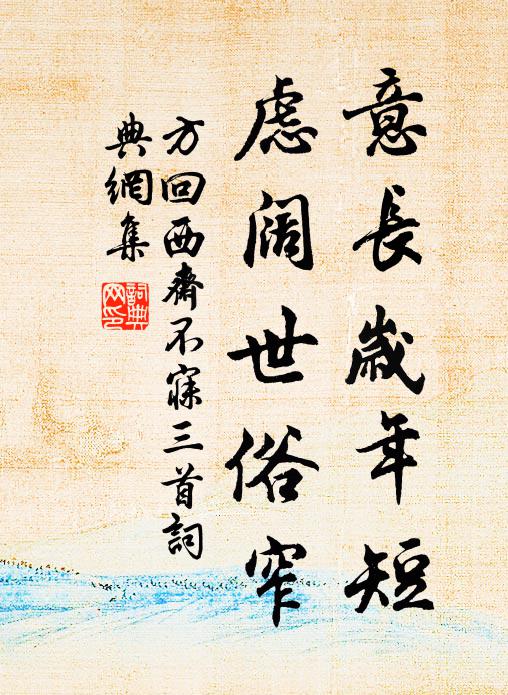 意長歲年短
慮闊世俗窄
方回西齋不寐三首詞
典網集
詞典
网印